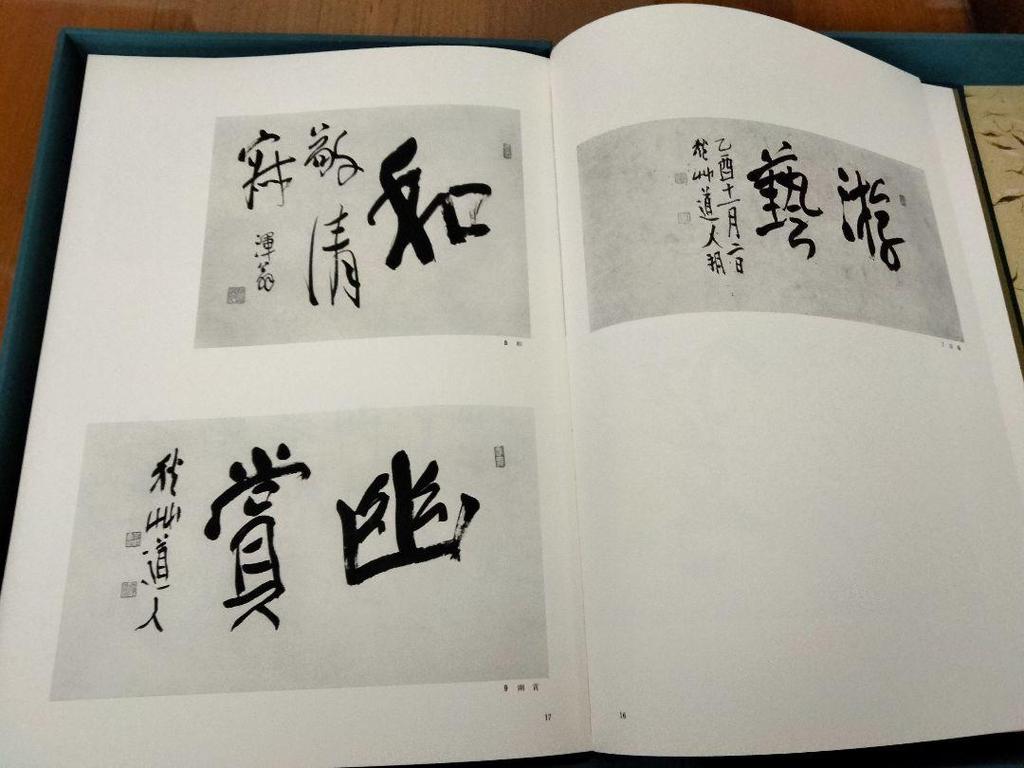 游
藝
乙酉十一月二日
秋艸道人
16
和
敬清
寂
渾翁
8 和
幽
賞
秋艸道人
9 幽賞
17